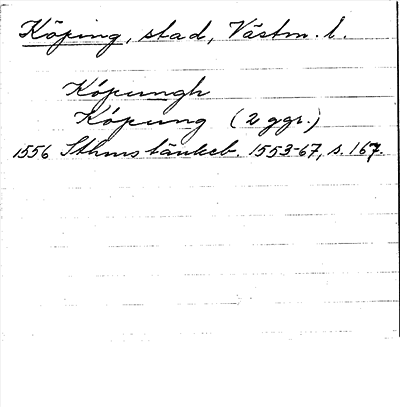 Köping, stad, Västm. l.
Köpungh
Köpung (2 ggr.)
1556 Sthms tänkeb. 1553-67, s. 167.